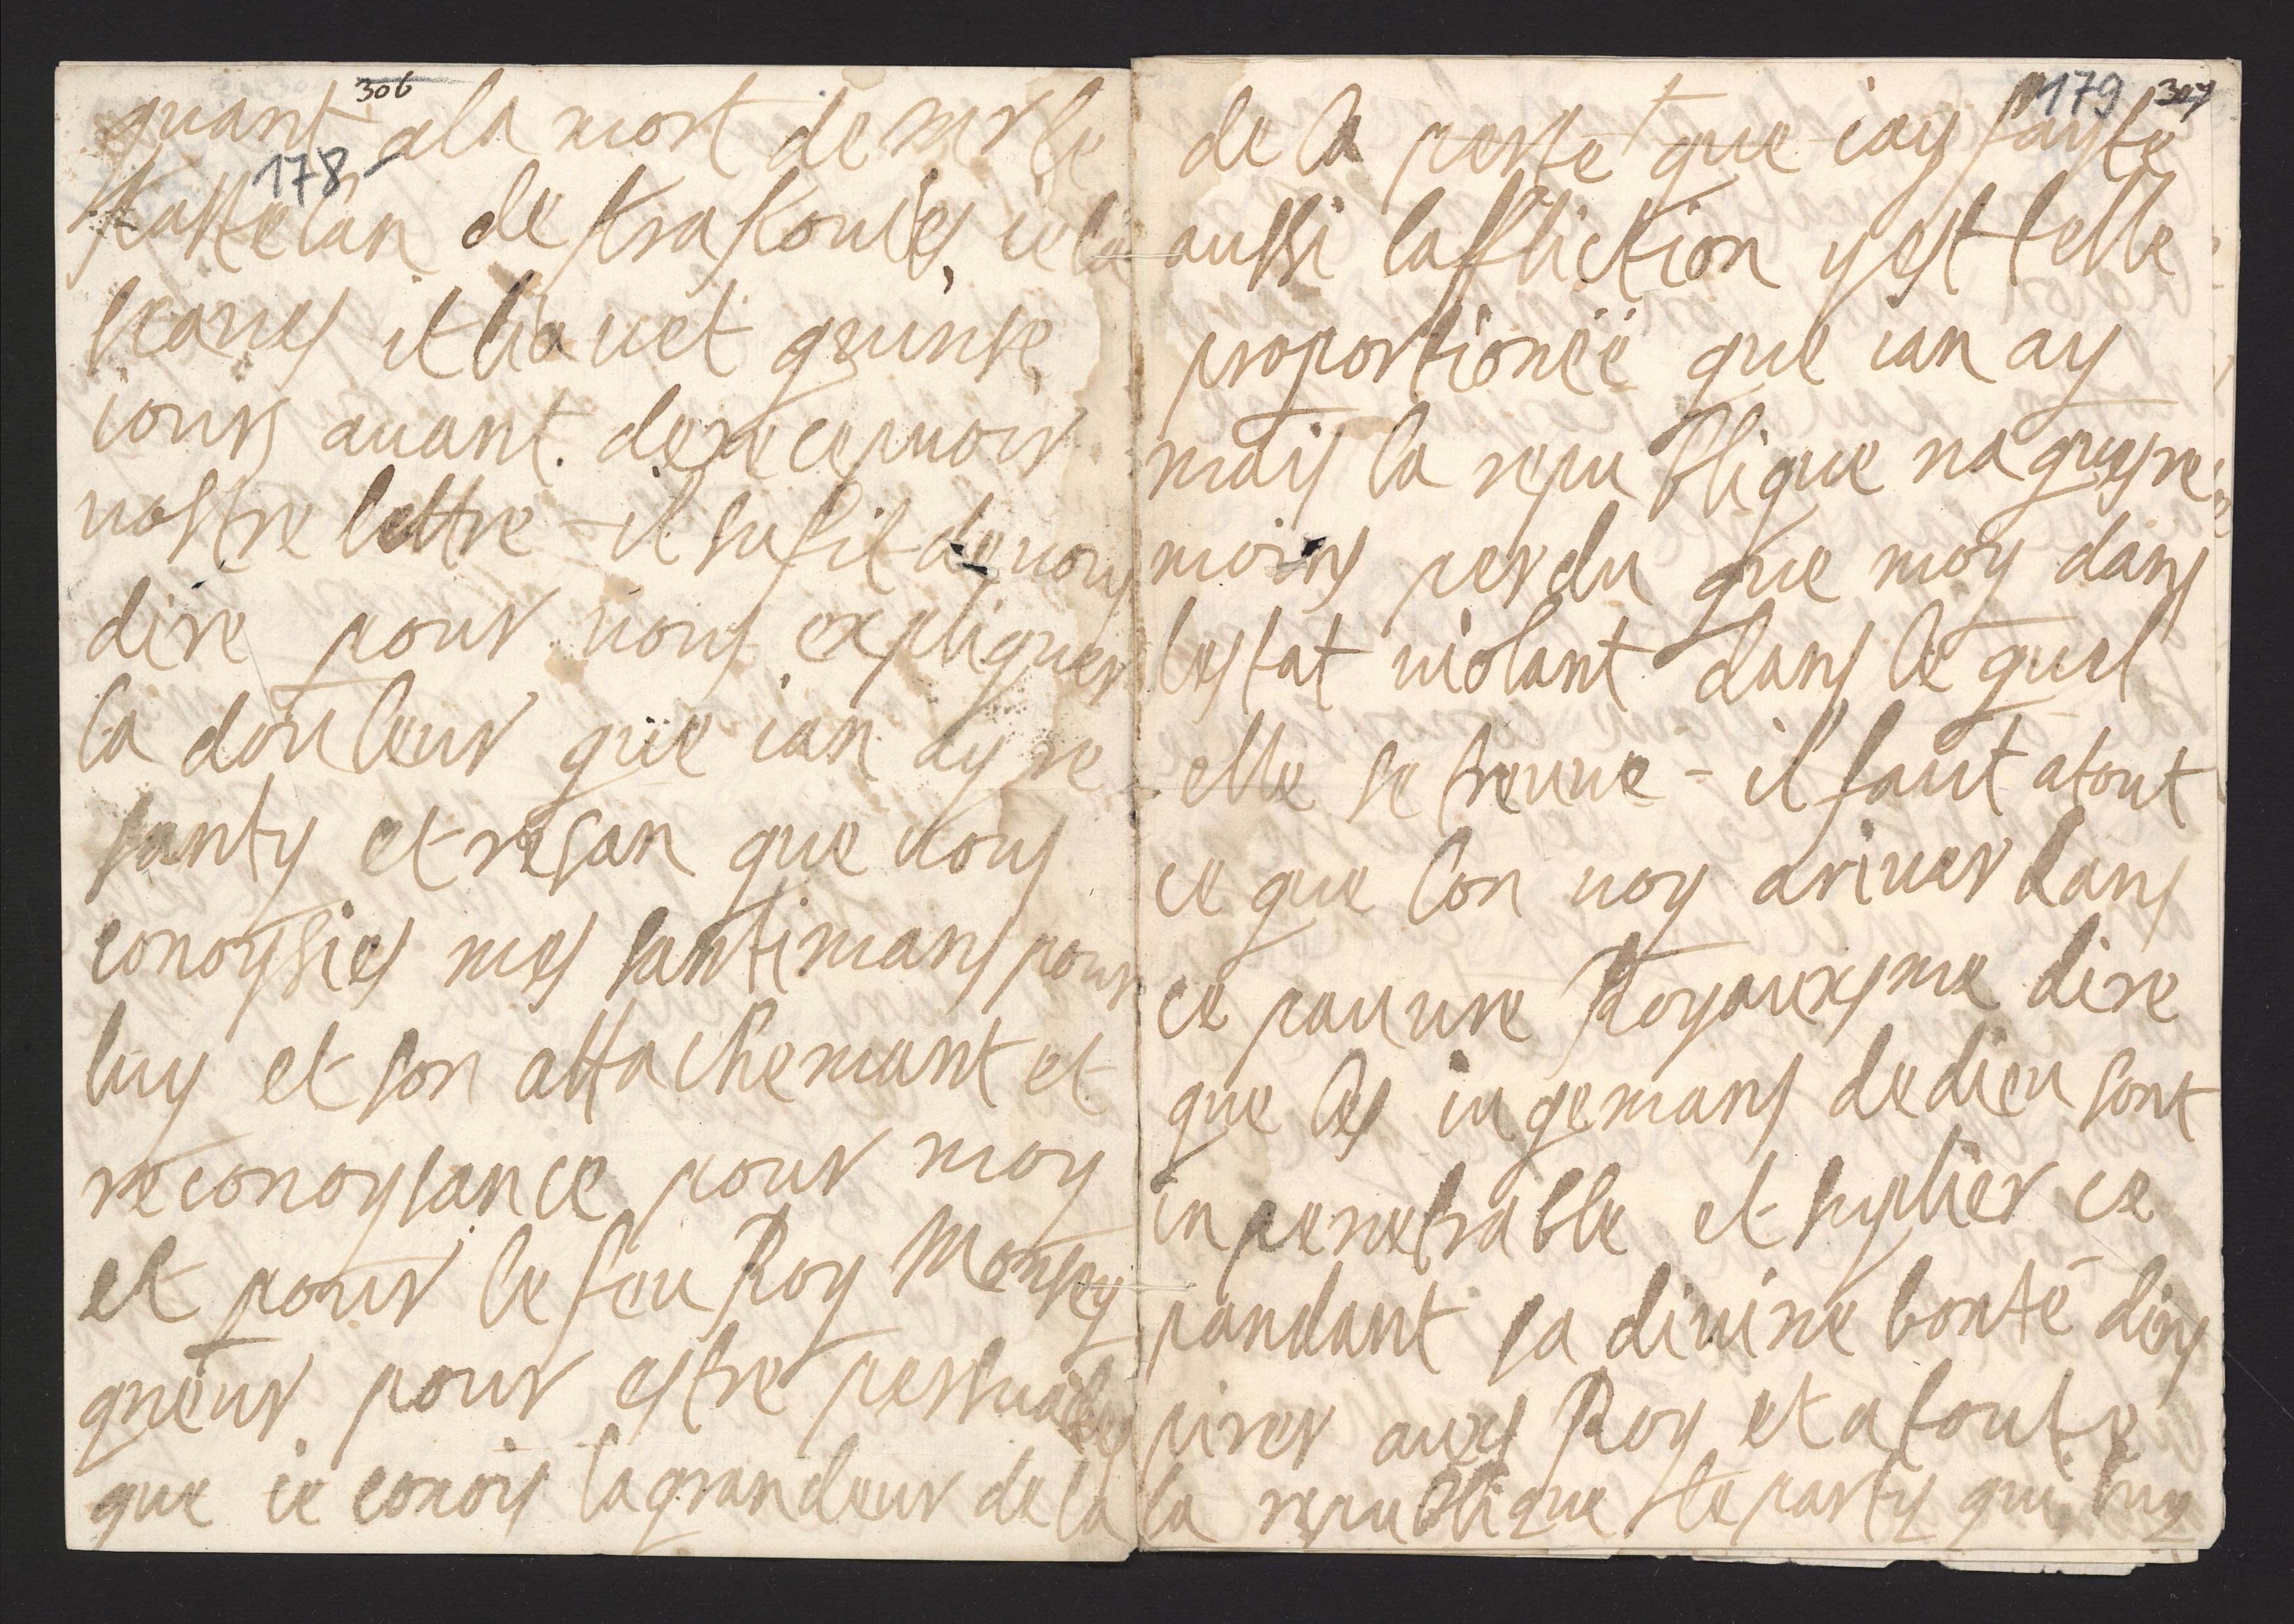 306
quant ala mort de mr le
178
kastelan de krakouies ie la
seaues it lia uet quinse
iours auant derecepuoir
vostre lettre - il sufit de vous
dire pour vous expliquer
la douleur que ian ay re
santy et resan que vous
conoyssies mes santimans pour
luy et son attachemant et
reconoysance pour moy
et pour le feu Roy Monsey
gneur pour estre persuadee
que ie conois la grandeur de la
179 307
de la perte que iay fayte
aussi laffliction yest telle
proportionée que ian ay
mais la republique na gueyre
moins perdu que moy dans
lestat violant dans le quel
elle se treuve - il faut atout
ce que lon voy ariver dans
ce pauvre Royauxsme dire
que les iugemans dedieu sont
inpenetrable et suplier ce
pandant sa divine bonté dins
pirer aux Roy et a toute
la republique le party qui luy